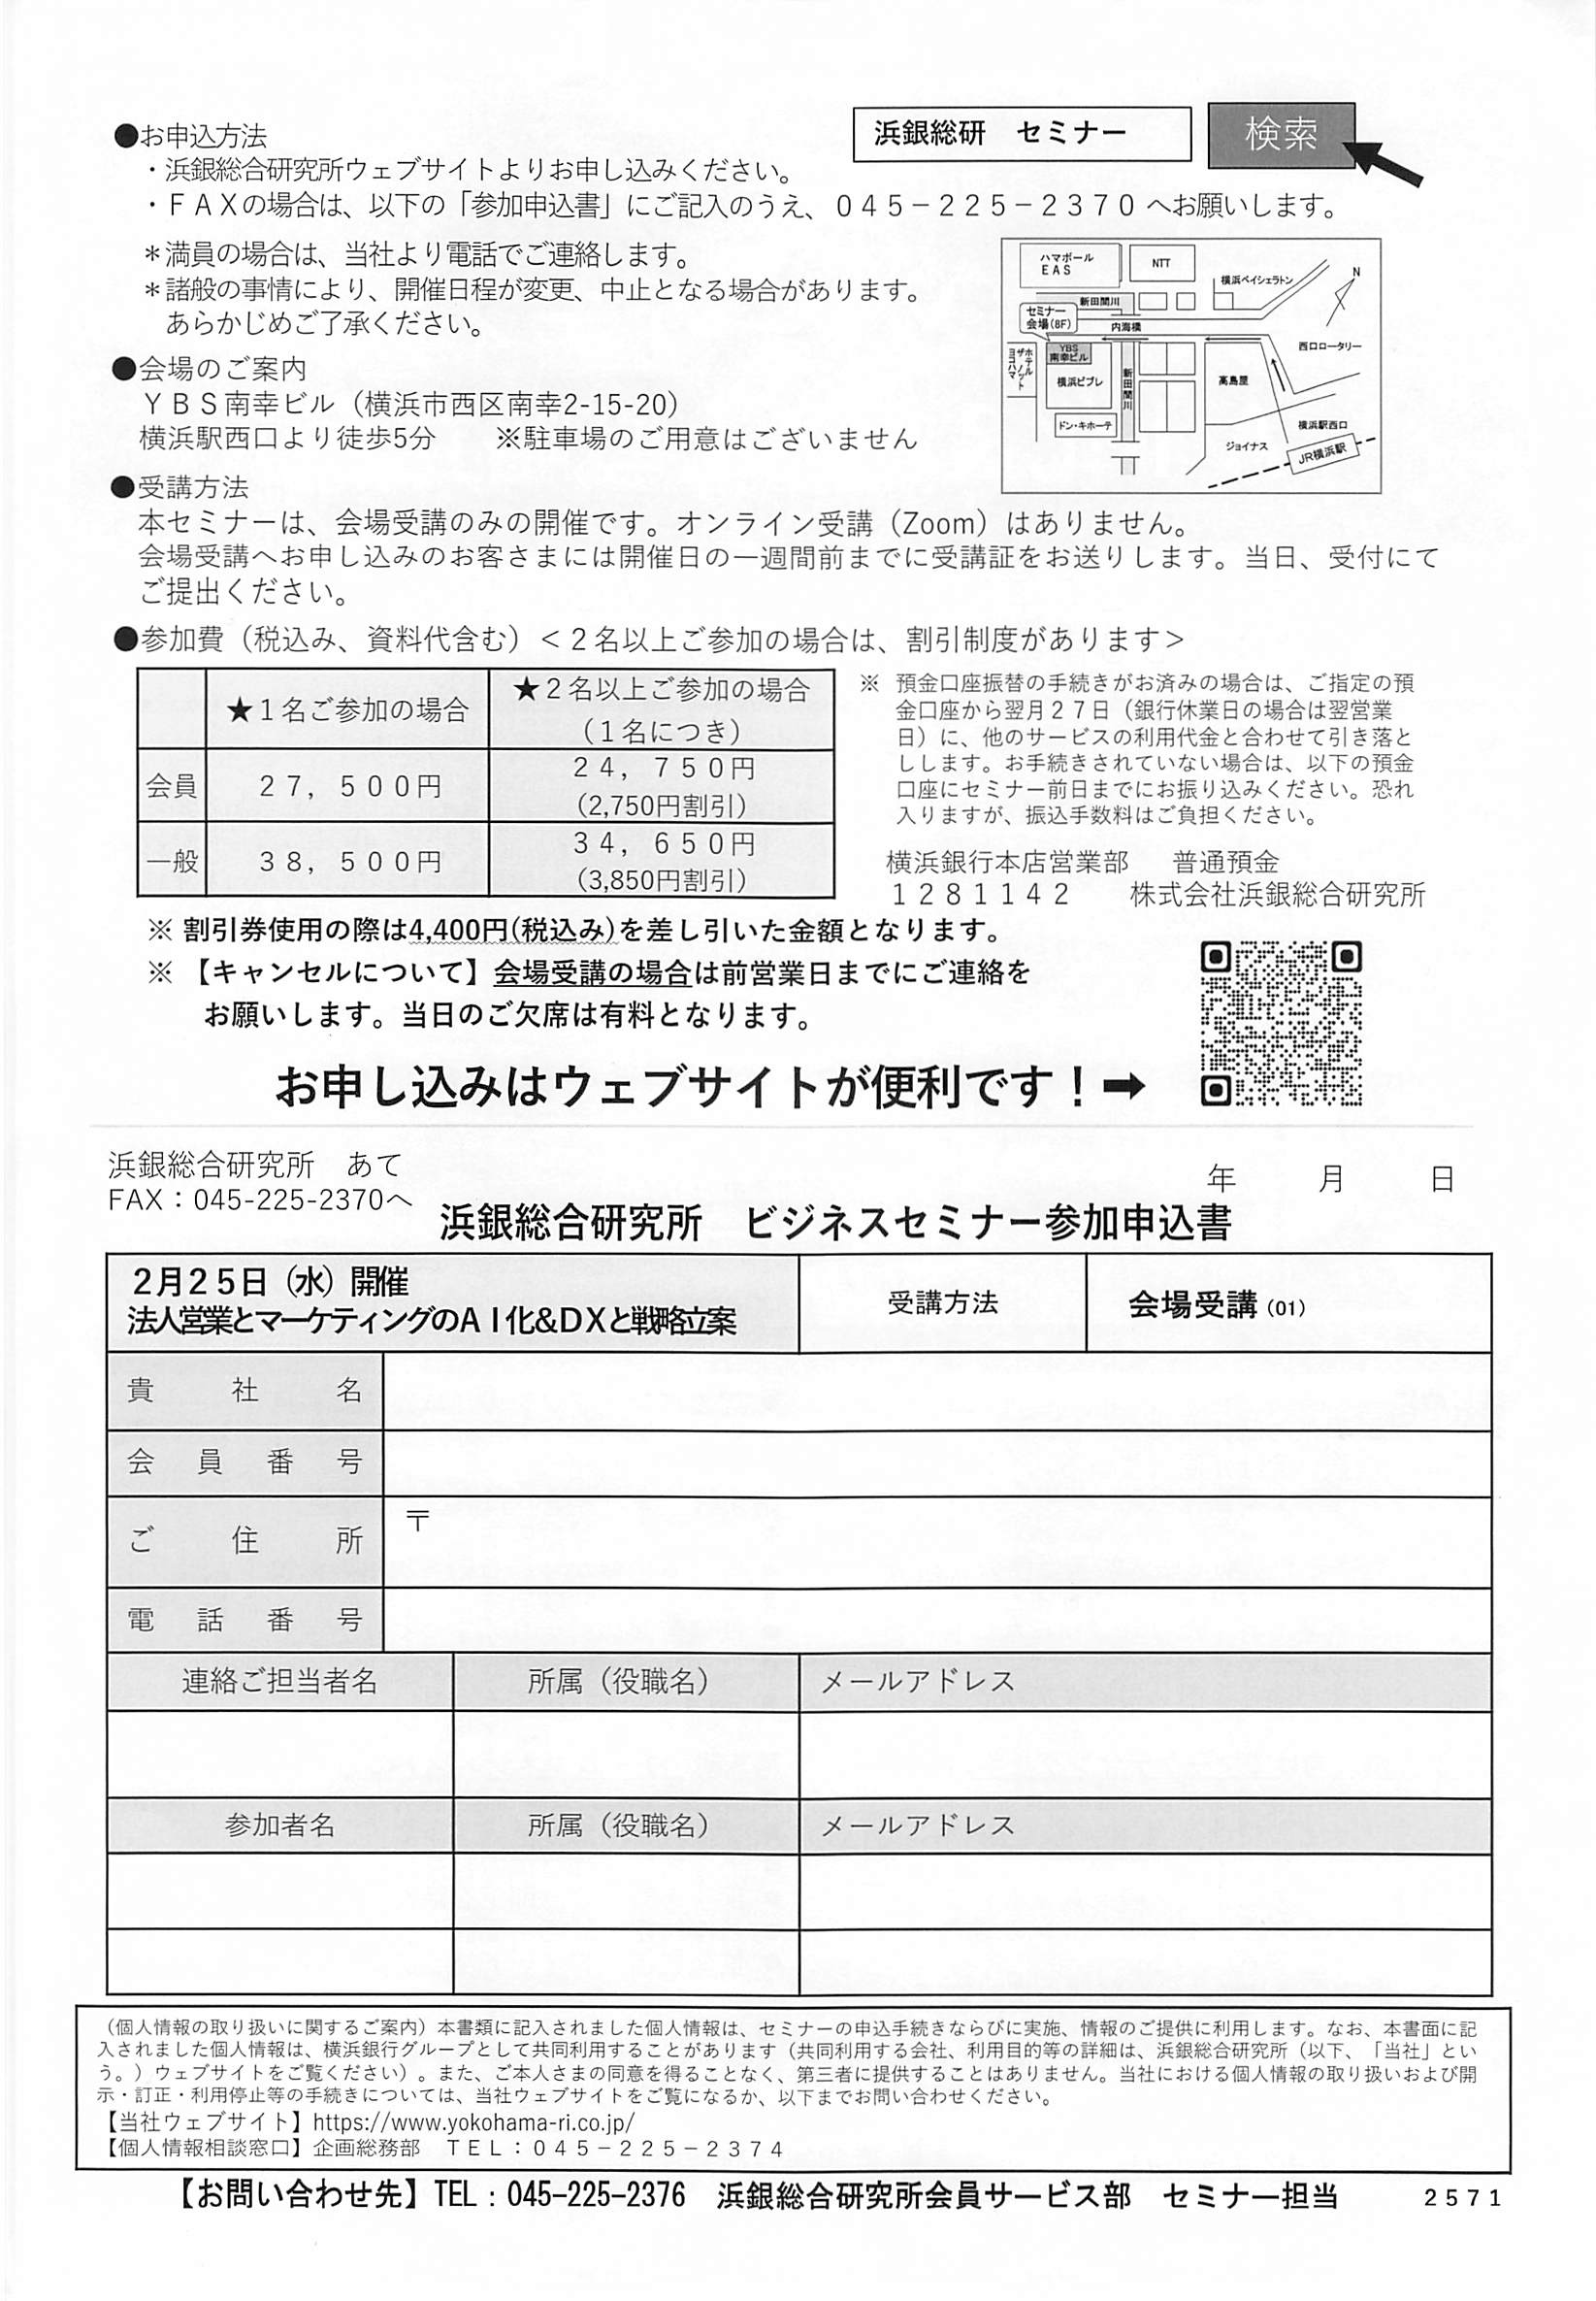 ●お申込方法
浜銀総研　セミナー
検索
・浜銀総合研究所ウェブサイトよりお申し込みください。
・ＦＡＸの場合は、以下の「参加申込書」にご記入のうえ、０４５－２２５－２３７０へお願いします。
＊満員の場合は、当社より電話でご連絡します。
＊諸般の事情により、開催日程が変更、中止となる場合があります。
あらかじめご了承ください。
ハマボール
ＥＡＳ
NTT
横浜ベイシェラトン
N
新田間川
セミナー
会場(8F)
内海橋
YBS
南幸ビル
ホテル
ザ・ノット
ヨコハマ
横浜ビブレ
新田間川
高島屋
西口ロータリー
ドン・キホーテ
ジョイナス
横浜駅西口
JR横浜駅
●会場のご案内
ＹＢＳ南幸ビル（横浜市西区南幸2-15-20）
横浜駅西口より徒歩5分　　※駐車場のご用意はございません
●受講方法
本セミナーは、会場受講のみの開催です。オンライン受講（Zoom）はありません。
会場受講へお申し込みのお客さまには開催日の一週間前までに受講証をお送りします。当日、受付にて
ご提出ください。
●参加費（税込み、資料代含む）＜２名以上ご参加の場合は、割引制度があります＞
★１名ご参加の場合
★２名以上ご参加の場合
（１名につき）
会員
２７，５００円
２４，７５０円
（2,750円割引）
一般
３８，５００円
３４，６５０円
（3,850円割引）
※ 預金口座振替の手続きがお済みの場合は、ご指定の預
金口座から翌月２７日（銀行休業日の場合は翌営業
日）に、他のサービスの利用代金と合わせて引き落と
しします。お手続きされていない場合は、以下の預金
口座にセミナー前日までにお振り込みください。恐れ
入りますが、振込手数料はご負担ください。
横浜銀行本店営業部　普通預金
１２８１１４２　　株式会社浜銀総合研究所
※ 割引券使用の際は4,400円(税込み)を差し引いた金額となります。
※ 【キャンセルについて】会場受講の場合は前営業日までにご連絡を
お願いします。当日のご欠席は有料となります。
お申し込みはウェブサイトが便利です！➡
浜銀総合研究所　あて
FAX：045-225-2370へ
年　　月　　日
浜銀総合研究所　ビジネスセミナー参加申込書
２月２５日（水）開催
法人営業とマーケティングのＡＩ化＆ＤＸと戦略立案
受講方法
会場受講（01）
貴社名
会員番号
ご住所
〒
電話番号
連絡ご担当者名
所属（役職名）
メールアドレス
参加者名
所属（役職名）
メールアドレス
（個人情報の取り扱いに関するご案内）本書類に記入されました個人情報は、セミナーの申込手続きならびに実施、情報のご提供に利用します。なお、本書面に記
入されました個人情報は、横浜銀行グループとして共同利用することがあります（共同利用する会社、利用目的等の詳細は、浜銀総合研究所（以下、「当社」とい
う。）ウェブサイトをご覧ください）。また、ご本人さまの同意を得ることなく、第三者に提供することはありません。当社における個人情報の取り扱いおよび開
示・訂正・利用停止等の手続きについては、当社ウェブサイトをご覧になるか、以下までお問い合わせください。
【当社ウェブサイト】https://www.yokohama-ri.co.jp/
【個人情報相談窓口】企画総務部　ＴＥＬ：０４５－２２５－２３７４
【お問い合わせ先】TEL：045−225−2376　浜銀総合研究所会員サービス部　セミナー担当
２５７１